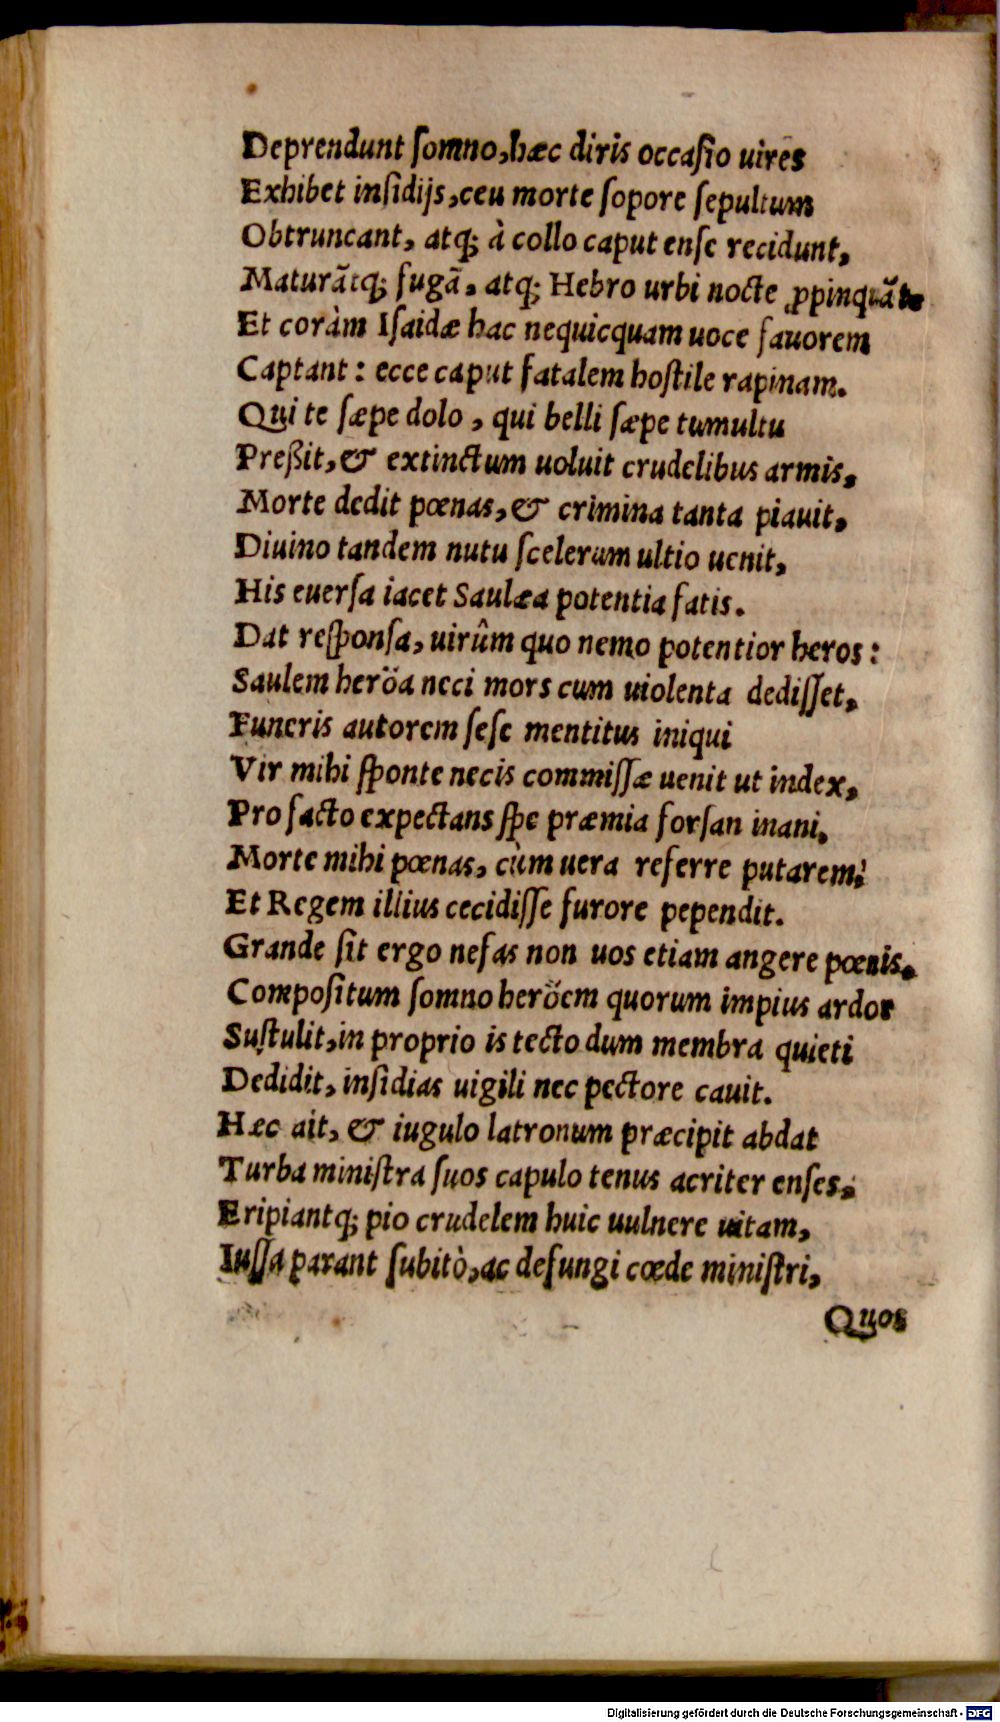 Deprendunt ſomno, hæc diris occaſio uires
Exhibet inſidijs, ceu morte ſopore ſepultum
Obtruncant, atq; à collo caput enſe recidunt,
Maturãtq; fugã, atq; Hebro urbi nocte ꝓpinquãte
Et coràm Iſaidæ hac nequicquam uoce fauorem
Captant: ecce caput fatalem hoſtile rapinam.
Qui te ſæpe dolo, qui belli ſæpe tumultu
Preßit, & extinctum uoluit crudelibus armis,
Morte dedit pœnas, & crimina tanta piauit,
Diuino tandem nutu ſcelerum ultio uenit,
His euerſa iacet Saulæa potentia fatis.
Dat reſponſa, uirûm quo nemo potentior heros:
Saulem heröa neci mors cum uiolenta dediſſet,
Funeris autorem ſeſe mentitus iniqui
Vir mihi ſponte necis commiſſæ uenit ut index,
Pro facto expectans ſpe præmia forſan inani,
Morte mihi pœnas, cùm uera referre putarem,
Et Regem illius cecidiſſe furore pependit.
Grande ſit ergo nefas non uos etiam angere pœnis,
Compoſitum ſomno heröem quorum impius ardor
Suſtulit, in proprio is tecto dum membra quieti
Dedidit, inſidias uigili nec pectore cauit.
Hæc ait, & iugulo latronum præcipit abdat
Turba miniſtra ſuos capulo tenus acriter enſes,
Eripiantq; pio crudelem huic uulnere uitam,
Iuſſa parant ſubitò, ac defungi cœde miniſtri,
Quos
Digitalisierung gefördert durch die Deutsche Forschungsgemeinschaft - DFG